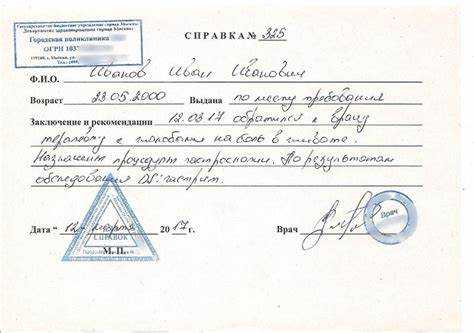 Государственное бюджетное учреждение города Москвы
Департамента здравоохранения города Москвы
Городская поликлиника
ОГРН 1037
г. Москва, ул.
СПРАВКА № 325
Ф.И.О. Иванов Иван Иванович
Возраст 23.05.2000 Выдана по месту требования
Заключение и рекомендации 12.03.17 обратился к врачу
терапевту с жалобами на боль в животе.
Назначена процедура гастроскопии. По результатам
обследования DS: гастрит.
Дата "12" марта 2017 г. Врач
Врач
СПРАВОК
М. П.